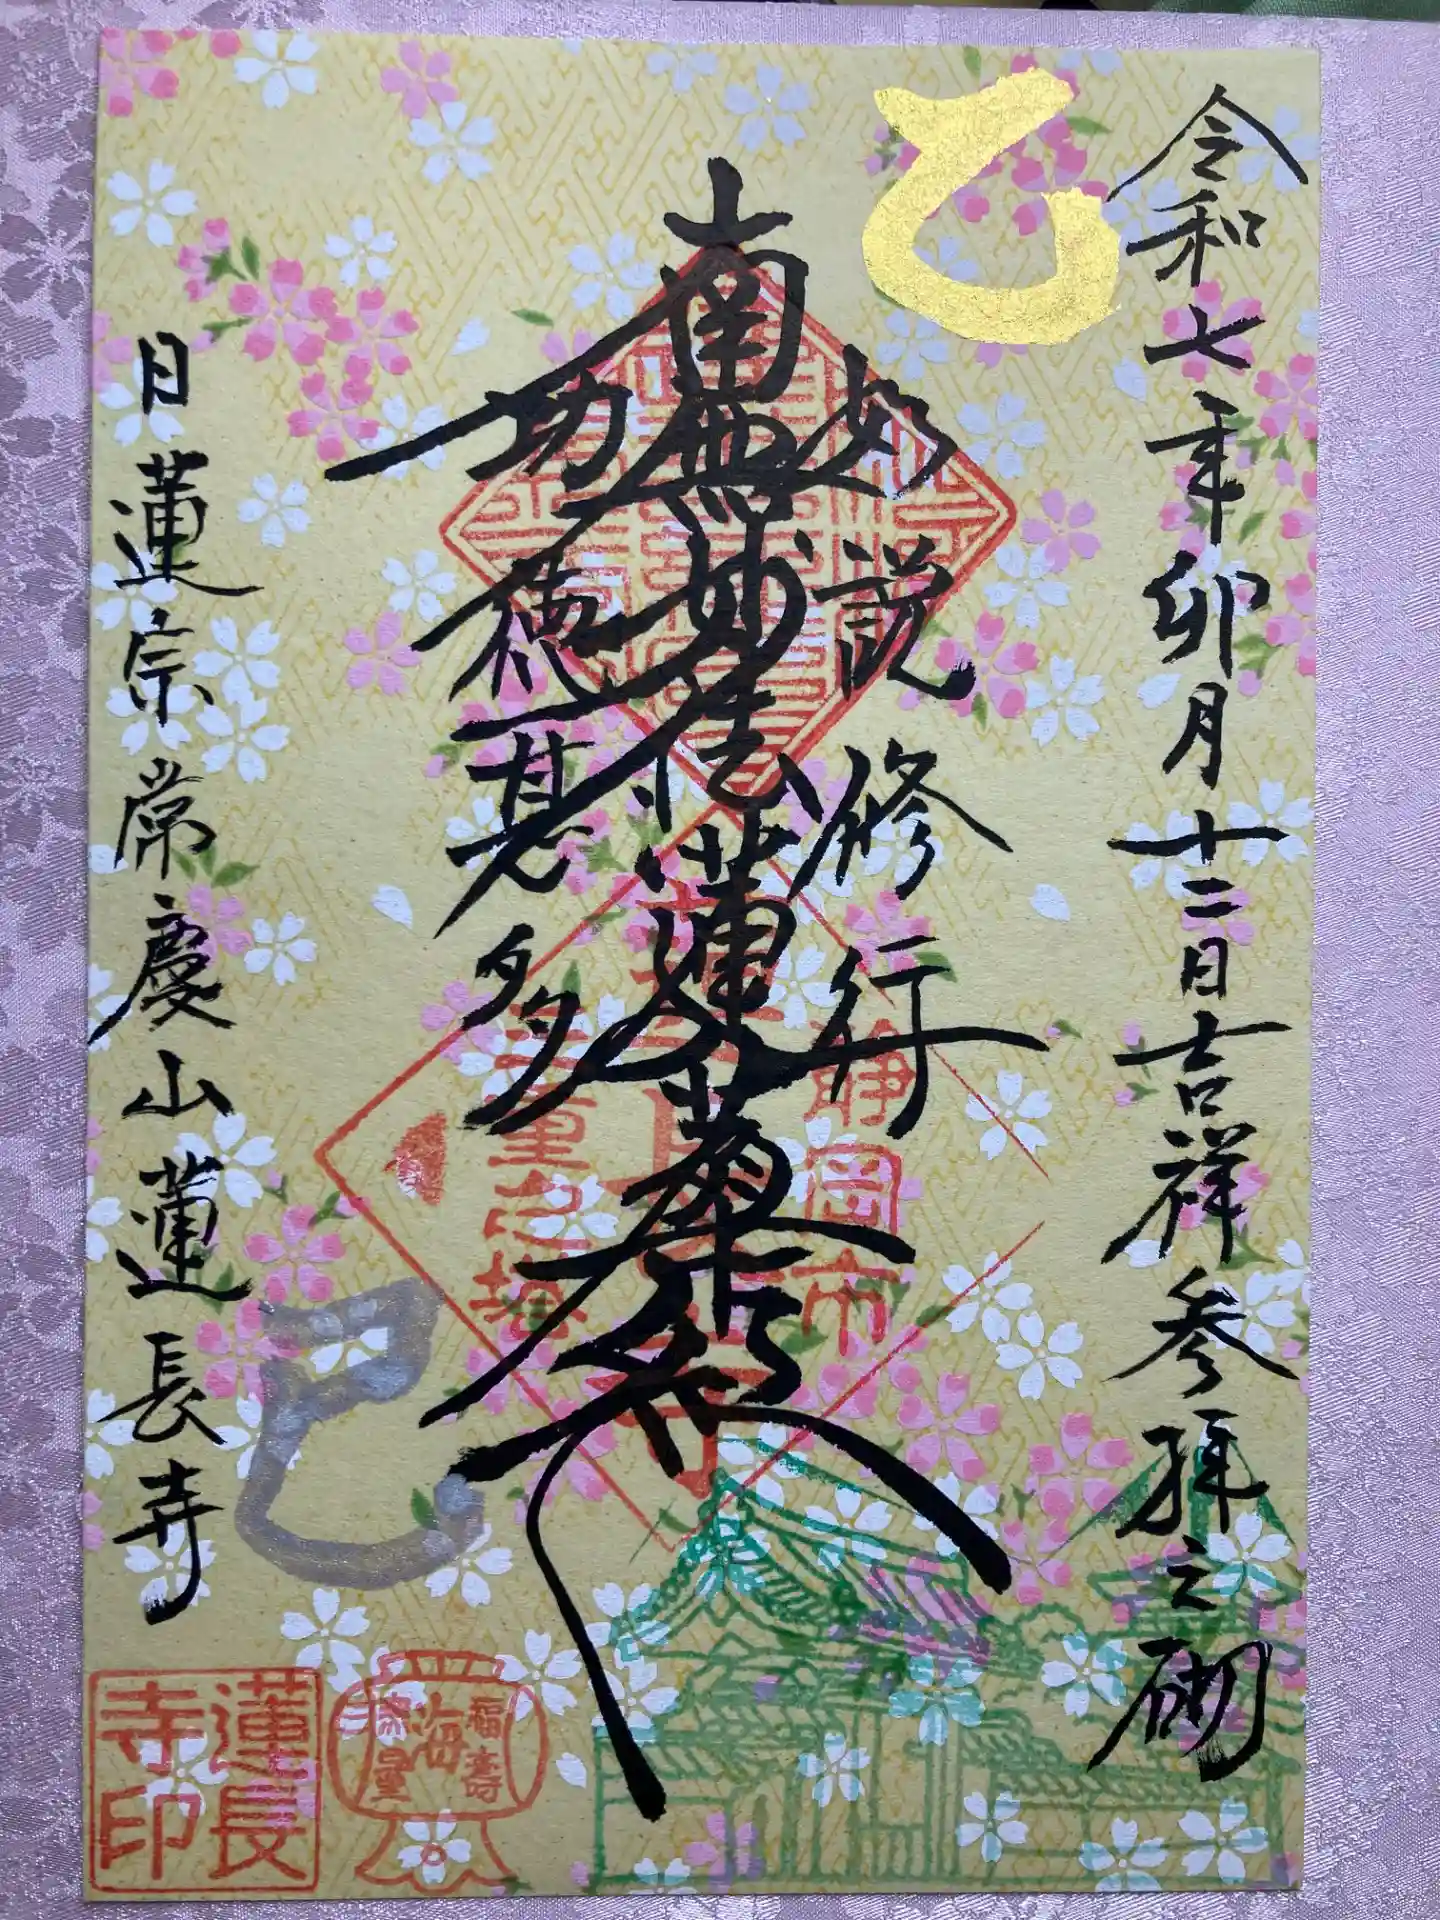 令和七年卯月十二日吉祥参拝之砌
乙
如説修行
南無妙法蓮華経
功徳甚多
巳
日蓮宗常慶山蓮長寺
静岡市
福寿
海
無量
蓮長
寺印